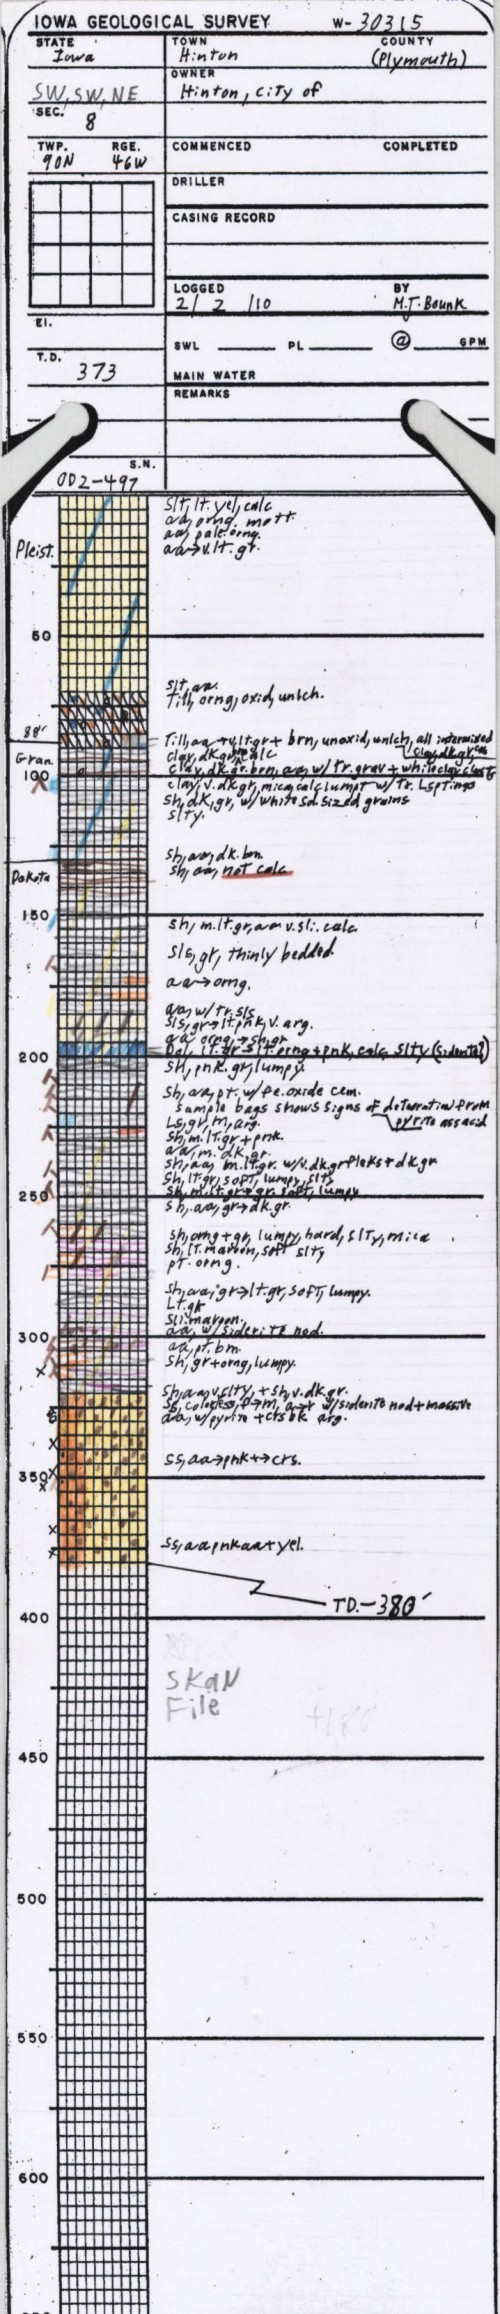 IOWA GEOLOGICAL SURVEY W-30315
STATE TOWN COUNTY
Iowa Hinton (Plymouth)
OWNER
SW, SW, NE Hinton, City of
SEC.
8
TWP. RGE. COMMENCED COMPLETED
90N 46W
DRILLER
CASING RECORD
LOGGED BY
2/ 2 /10 M.J. Bounk
El.
SWL PL @ GPM
T.D.
373
MAIN WATER
REMARKS
S.N.
OD2-497
Slt, lt. yel, calc
aa, orng. mott.
aa, pale orng.
Pleist. aa→v.lt.gr.
50
Slt, aa.
Till, orng, oxid, unlch.
88'
Till, aa + v.lt.gr + brn, unoxid, unlch, all intermixed
clay, dk.gr, calc
Gran. clay, dk.gr.brn, aa, w/ tr. grav + white clay clasts
100 clay, v.dk.gr, mica, calc lumps w/ tr. Ls
sh, dk.gr, w/ white sd. sized grains
slty.
sh, aa, dk. brn.
Dakota sh, aa, not calc
150 sh, m.lt.gr, aa v.sli. calc
Sls, gr, thinly bedded.
aa→orng.
aa, w/ tr. sls
Sls, gr→lt.pnk, v. arg.
aa orng→sh, gr
200 Dol, lt.gr→lt.orng+pnk, calc, slty (siderite?)
sh, pnk. gr, lumpy.
Sh, aa, pt. w/ fe. oxide cem.
sample bags shows signs of from
pyrite as acid
Ls, gr, m, arg.
Sh, m.lt.gr + pnk.
aa, m. dk. gr.
sh, aa, m.lt.gr. w/ v.dk.gr fleks + dk.gr
Sh, lt.gr, soft, lumpy, slty
250 Sh, m.lt.gr→gr. soft, lumpy
sh, aa, gr→dk.gr.
sh, orng+gr, lumpy, hard, slty, mica
Sh, lt. maroon, soft slty
pt. orng.
Sh, aa, gr→lt.gr, soft, lumpy.
Lt.gr
Sli. maroon.
300 aa, w/ siderite nod.
aa, pt. brn.
Sh, gr+orng, lumpy.
Sh, aa, v.slty, + sh, v.dk.gr.
Ss, colorless, f→m, a→r w/ siderite nod + massive
aa, w/ pyrite + crs bk arg.
350 ss, aa→pnk+→crs.
Ss, aa pnk aa + yel.
TD.-380'
400
SKAN
File
450
500
550
600